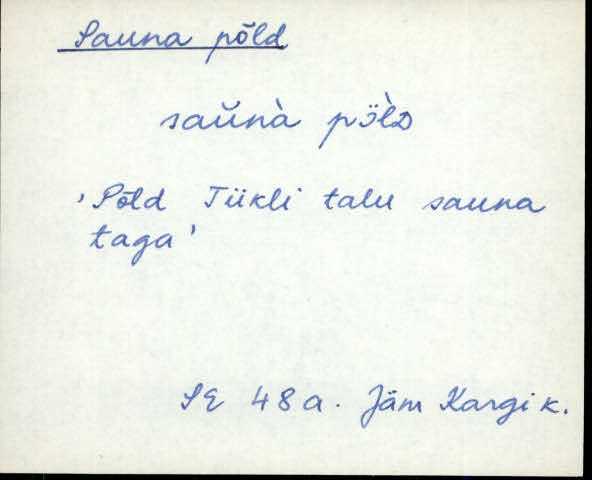 Sauna põld
saŭnà pö̀lD
'Põld Tiikli talu sauna
taga'
SE 48 a. Jäm Kargi k.